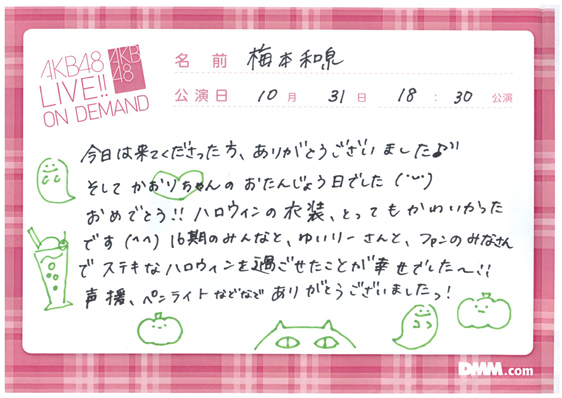 AKB48
LIVE!!
ON DEMAND
AKB
48
名前 梅本和泉
公演日 10月 31日 18:30 公演
今日は来てくださった方、ありがとうございました♪''
そして かおりちゃんの おたんじょう日でした (˙ᵕ˙)
おめでとう!! ハロウィンの衣装、とってもかわいかった
です (^^) 16期のみんなと、ゆいりーさんと、ファンのみなさん
で ステキなハロウィンを過ごせたことが幸せでした〜!!
声援、ペンライトなどなど ありがとうございましたっ!
DMM.com